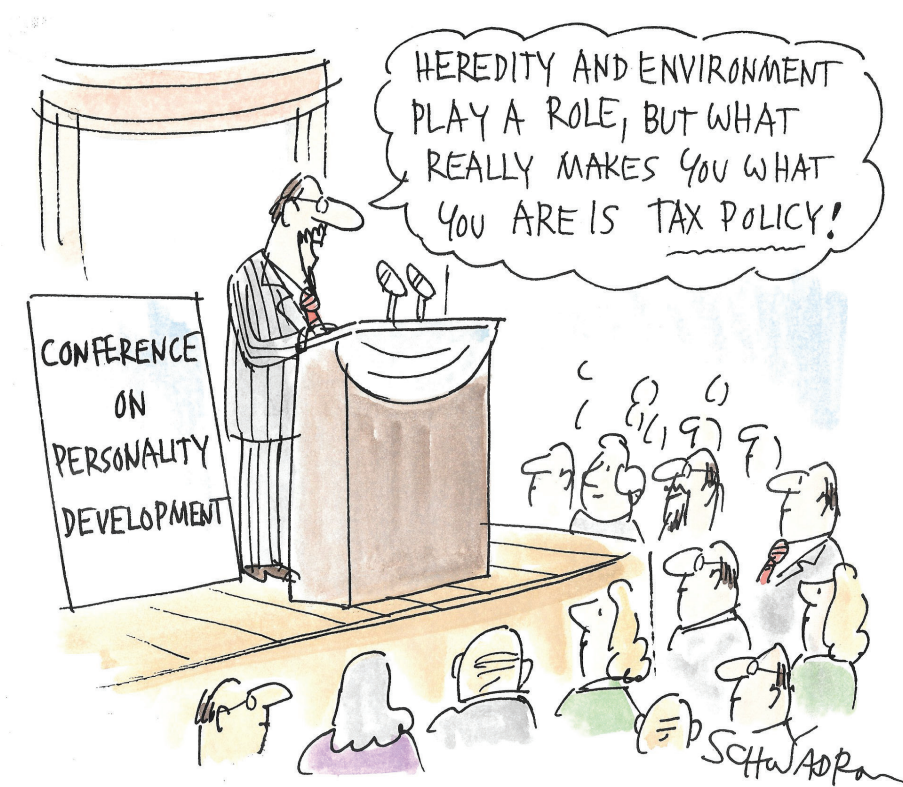 HEREDITY AND ENVIRONMENT
PLAY A ROLE, BUT WHAT
REALLY MAKES YOU WHAT
YOU ARE IS TAX POLICY!
CONFERENCE
ON
PERSONALITY
DEVELOPMENT
SCHWADRON